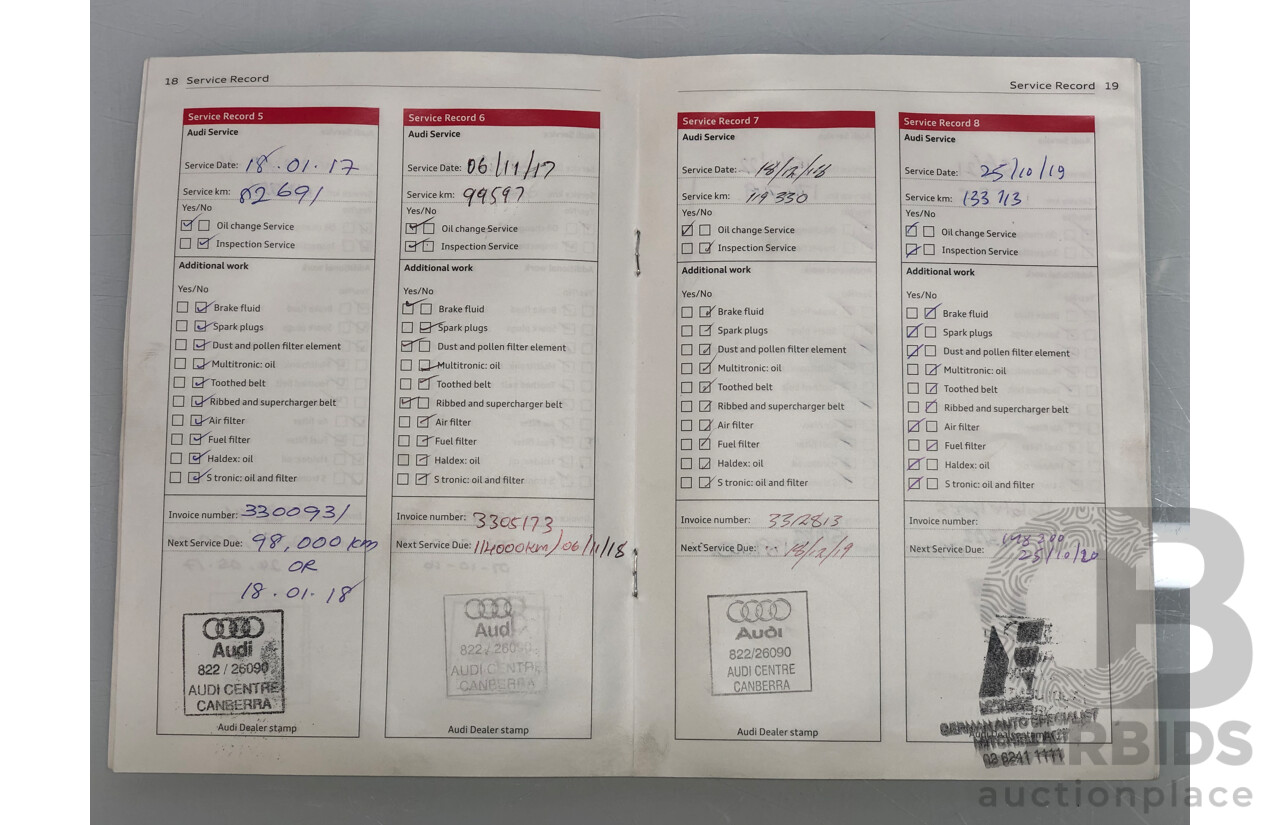 18 Service Record
Service Record 5
Audi Service
Service Date: 18.01.17
Service km: 82691
Yes/No
Oil change Service
Inspection Service
Additional work
Yes/No
Brake fluid
Spark plugs
Dust and pollen filter element
Multitronic: oil
Toothed belt
Ribbed and supercharger belt
Air filter
Fuel filter
Haldex: oil
S tronic: oil and filter
Invoice number: 3300931
Next Service Due: 98,000 km
OR
18.01.18
Audi
822 / 26090
AUDI CENTRE
CANBERRA
Audi Dealer stamp
Service Record 6
Audi Service
Service Date: 06/11/17
Service km: 99597
Yes/No
Oil change Service
Inspection Service
Additional work
Yes/No
Brake fluid
Spark plugs
Dust and pollen filter element
Multitronic: oil
Toothed belt
Ribbed and supercharger belt
Air filter
Fuel filter
Haldex: oil
S tronic: oil and filter
Invoice number: 3305173
Next Service Due: 114000km/06/11/18
Audi
822 / 26090
AUDI CENTRE
CANBERRA
Audi Dealer stamp
Service Record 19
Service Record 7
Audi Service
Service Date: 18/12/18
Service km: 119330
Yes/No
Oil change Service
Inspection Service
Additional work
Yes/No
Brake fluid
Spark plugs
Dust and pollen filter element
Multitronic: oil
Toothed belt
Ribbed and supercharger belt
Air filter
Fuel filter
Haldex: oil
S tronic: oil and filter
Invoice number: 3312813
Next Service Due: 18/12/19
Audi
822/26090
AUDI CENTRE
CANBERRA
Audi Dealer stamp
Service Record 8
Audi Service
Service Date: 25/10/19
Service km: 133 713
Yes/No
Oil change Service
Inspection Service
Additional work
Yes/No
Brake fluid
Spark plugs
Dust and pollen filter element
Multitronic: oil
Toothed belt
Ribbed and supercharger belt
Air filter
Fuel filter
Haldex: oil
S tronic: oil and filter
Invoice number:
Next Service Due:
25/10/20
GERMAN AUTO SPECIALIST
MITCHELL ACT
02 6241 1111
ARBIDS
auctionplace